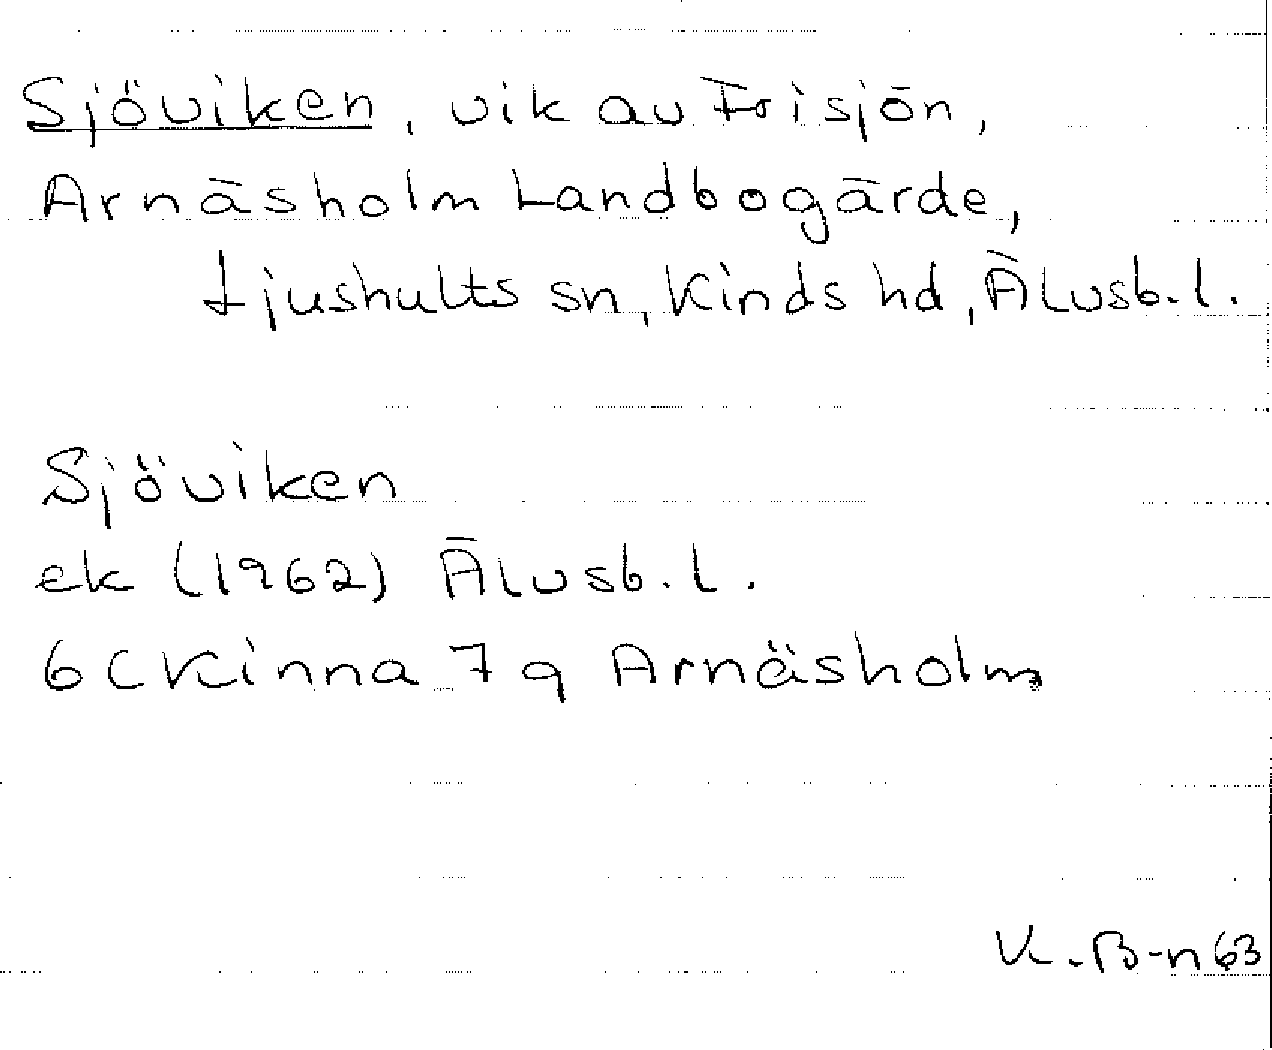 Sjöviken, vik av Frisjön,
Arnäsholm Landbogärde,
Ljushults sn, Kinds hd, Älvsb.l.
Sjöviken
ek (1962) Älvsb.l.
6C Kinna 7 q Arnäsholm
K.B-n 63